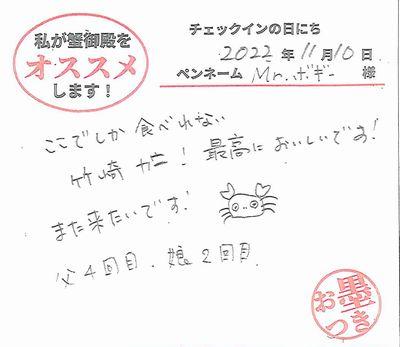 私が蟹御殿を
オススメ
します！
チェックインの日にち
2022年11月10日
ペンネーム Mr.ボギー 様
ここでしか食べれない
竹崎カニ！最高においしいです！
また来たいです！
父4回目、娘2回目
お墨つき